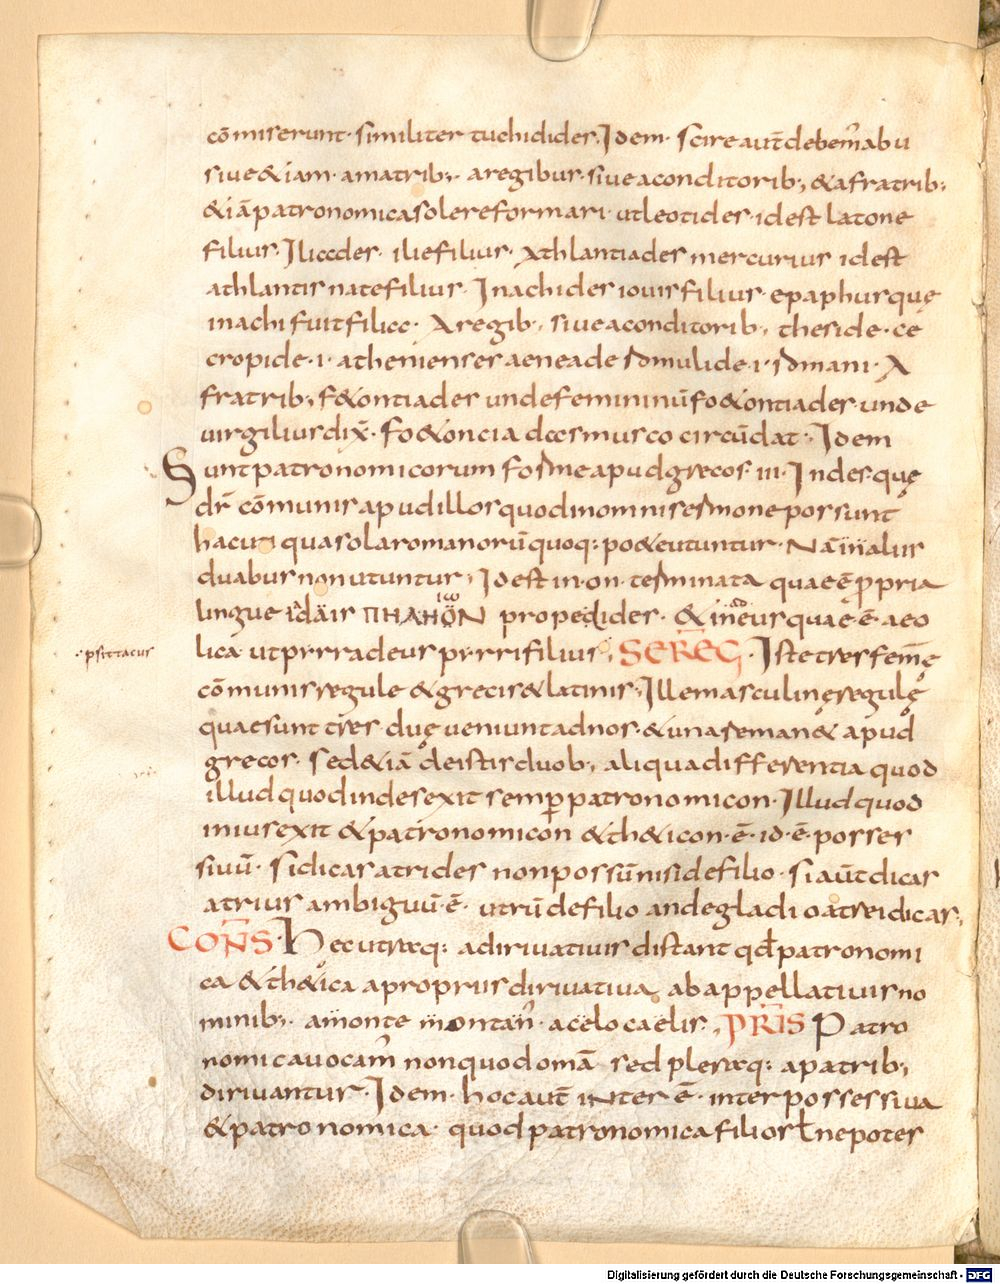 cōmiserunt· similiter tuchidides· Idem· scire aut̄ debem̃ abu
siue &iam· amatrib;· aregibus· siue aconditorib;, & afratrib;
&iā patronomica solere formari· ut leotides· idest latone
filius· Iliccdes· ilie filius· Athlantiades mercurius idest
athlantis nate filius· Inachides iouis filius· epaphus quę
inachi fuit filicc· Aregib;, siue aconditorib;, theside· ce
cropide· i· athenienses aeneade romulide· i· romani· A
fratrib;, f&ontiades unde femininū fo&ontiades· unde
uirgilius dix̄· fo&oncia dccs musco circūdat· Idem
Sunt patronomicorum forme apud grecos· III· In des· quę
dr̄ cōmunis apud illos quod in omni sermone possunt
hac uti qua sola romanorū quoq: po&e utuntur· Nā in alus
duabus non utuntur, Idest in· on· terminata quae ē ppria
lingue idais ΠΗΛΗΩΝ pro pelides· & in eus quae ē· aeo
lica· ut prrradeus prrrrifilius, SEREG· Iste tres femę
·psittacus
cōmunis regule & grecis & latinis· Ille masculinę regulę
quae sunt tres· duę ueniunt ad nos· & una reman& apud
grecos· sed &iā de istis duob;, aliqua differentia quod
illud quod in des exit semp patronomicon· Illud quod
in ius exit & patronomicon & th&icon· ē· id· ē· posses
siuū· si dicas atrides non possūnisi de filio· si aūt dicas
atrius ambiguū· ē· utrū de filio an de gladio atrei dicas,
CONS· Hec utraq: adiriuatiuis distant qd patronomi
ca & th&ica apropriis diriuatiua ab appellatiuis no
minib;· amonte montan̄· acelo caelis, PRIS Patro
nomica uocam̃ non quod omā sed pleraq: apatrib;,
diriuantur· Idem· hoc aut̄ inter ē· inter possessiua
& patronomica· quod patronomica filios ƚ nepotes
Digitalisierung gefördert durch die Deutsche Forschungsgemeinschaft - DFG